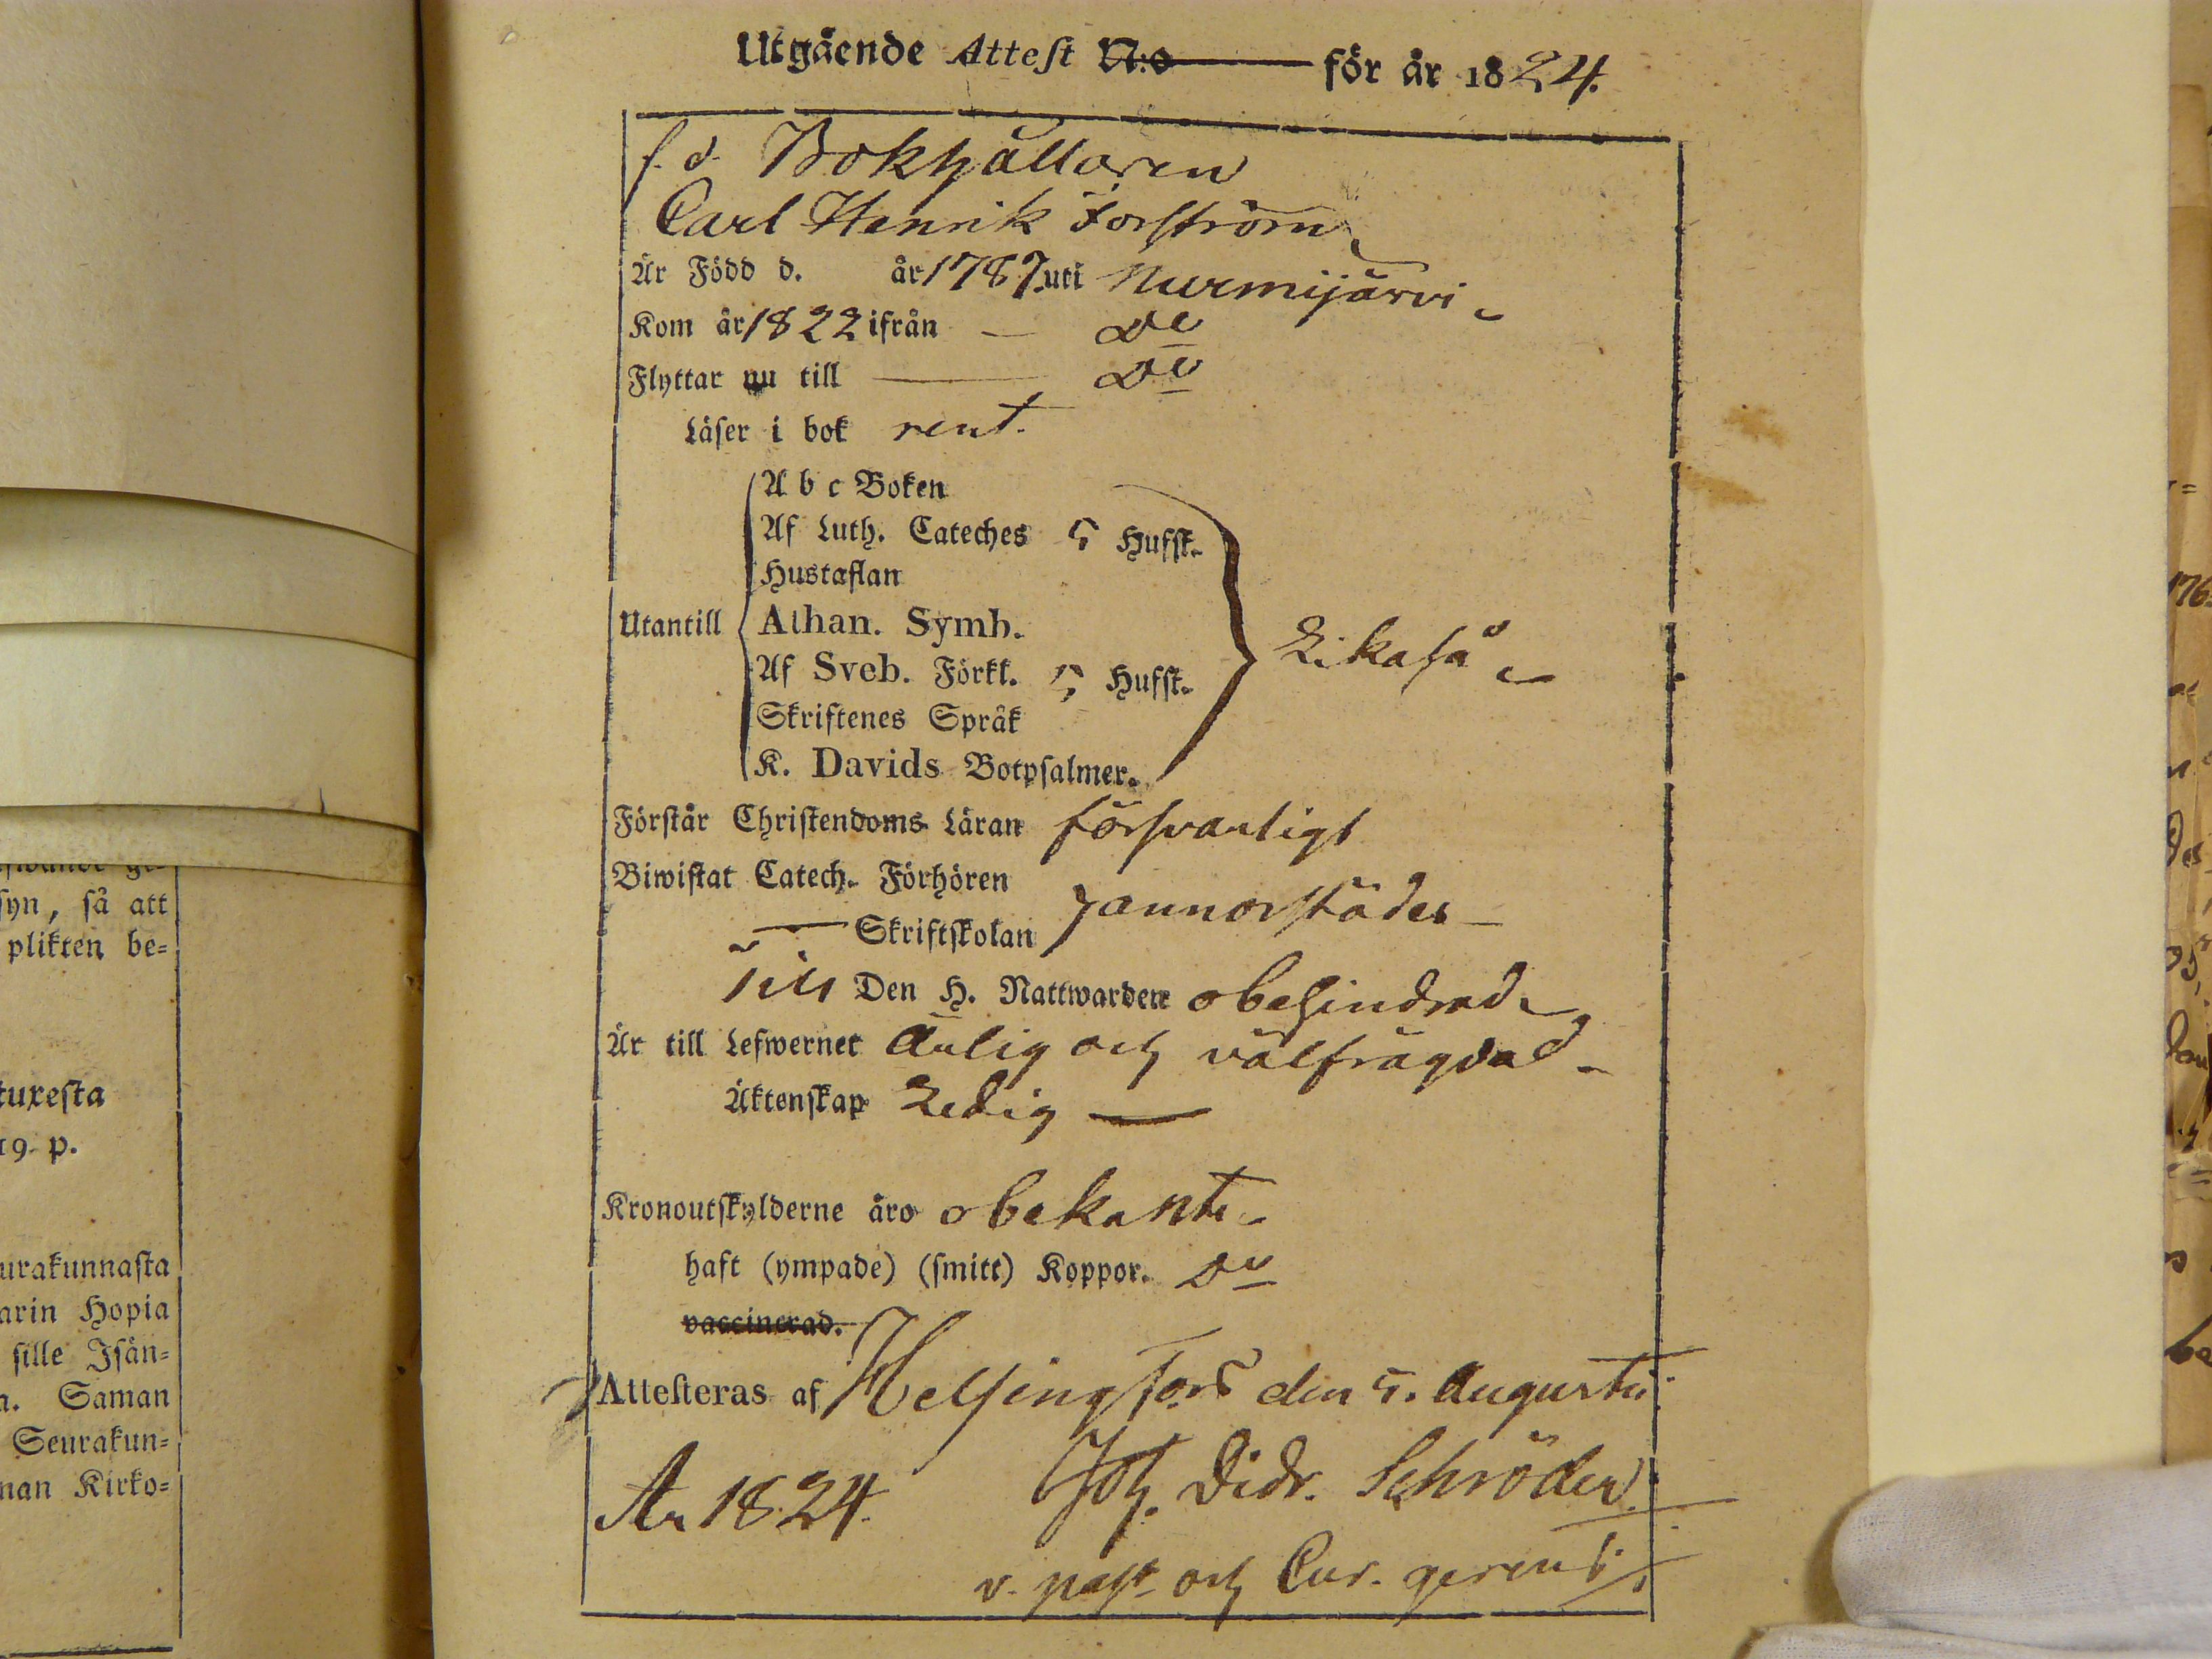 Utgående Attest N:o för år 1824.
f. d. Bokhållaren
Carl Henrik Forström
Är Född d. år 1787. uti Nurmijärvi
Kom år 1822 ifrån — Do
Flyttar nu till — Do
Läser i bok rent.
A b c Boken
Af Luth. Cateches 5 Hufst.
Hustaflan
Utantill Athan. Symb. Likaså
Af Sveb. Förkl. 5 Hufst.
Skriftenes Språk
K. Davids Botpsalmer.
Förstår Christendoms Läran försvarligt
Biwistat Catech. Förhören
— Skriftskolan annorstädes —
Till Den H. Nattwarden obehindrad
Är till Lefwernet ärlig och välfrägdad
Äktenskap Ledig —
Kronoutskylderne äro obekante
haft (ympade) (smitt) Koppor. Do
vaccinerad.
Attesteras af Helsingfors den 5. Augusti
År 1824. Joh. Didr. Schröder
v. past. och Cur. gerens
swande ge-
syn, så att
plikten be-
tuxesta
19. p.
urakunnasta
arin Hopia
sille Isän-
n. Saman
Seurakun-
nan Kirko-